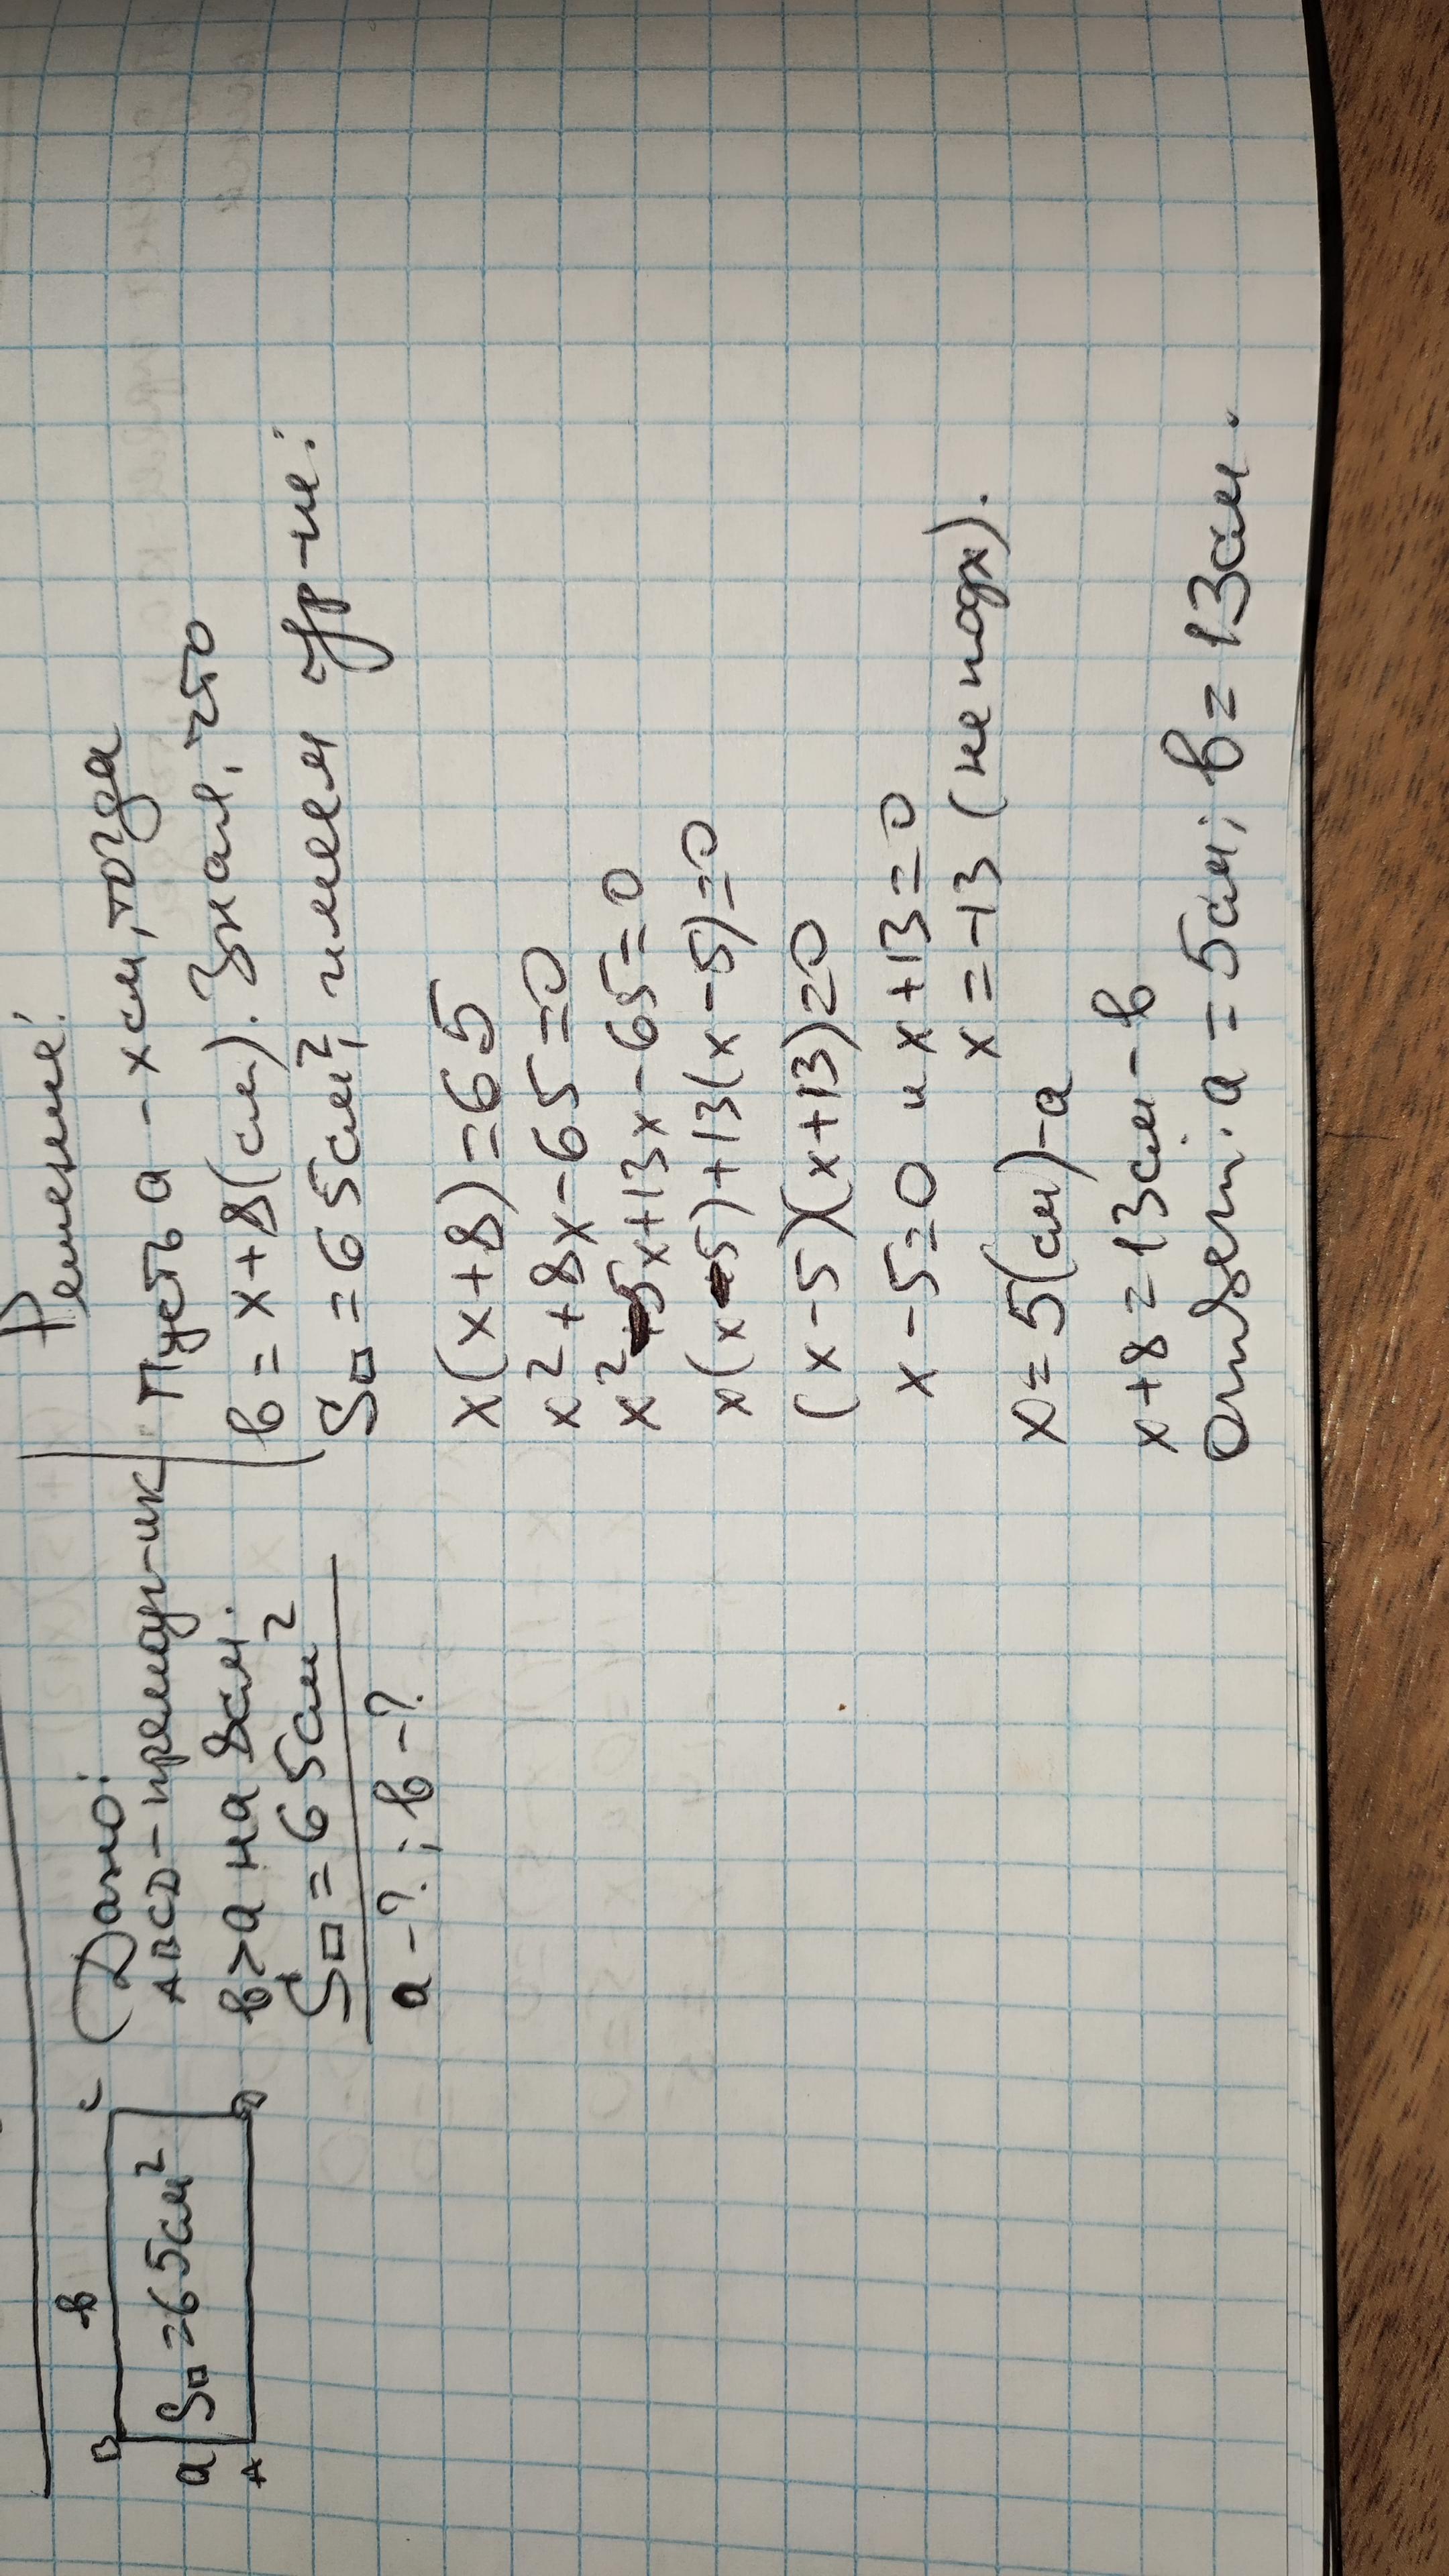 B b C
a S□=65см²
A D
Дано:
ABCD-прямоуг-ик
b>a на 8см.
S□=65см²
a-?; b-?
Решение:
Пусть a - xсм, тогда
b=x+8(см). Зная, что
S□=65см², имеем ур-ие:
x(x+8)=65
x²+8x-65=0
x²-5x+13x-65=0
x(x-5)+13(x-5)=0
(x-5)(x+13)=0
x-5=0 и x+13=0
x=-13 (не подх).
x=5(см)-a
x+8=13см-b
Ответ: a=5см; b=13см.